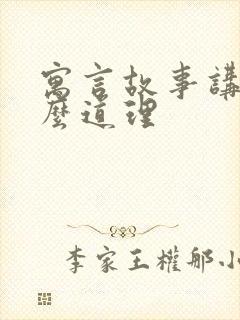 寓言故事講
麼道理
李家王權那小